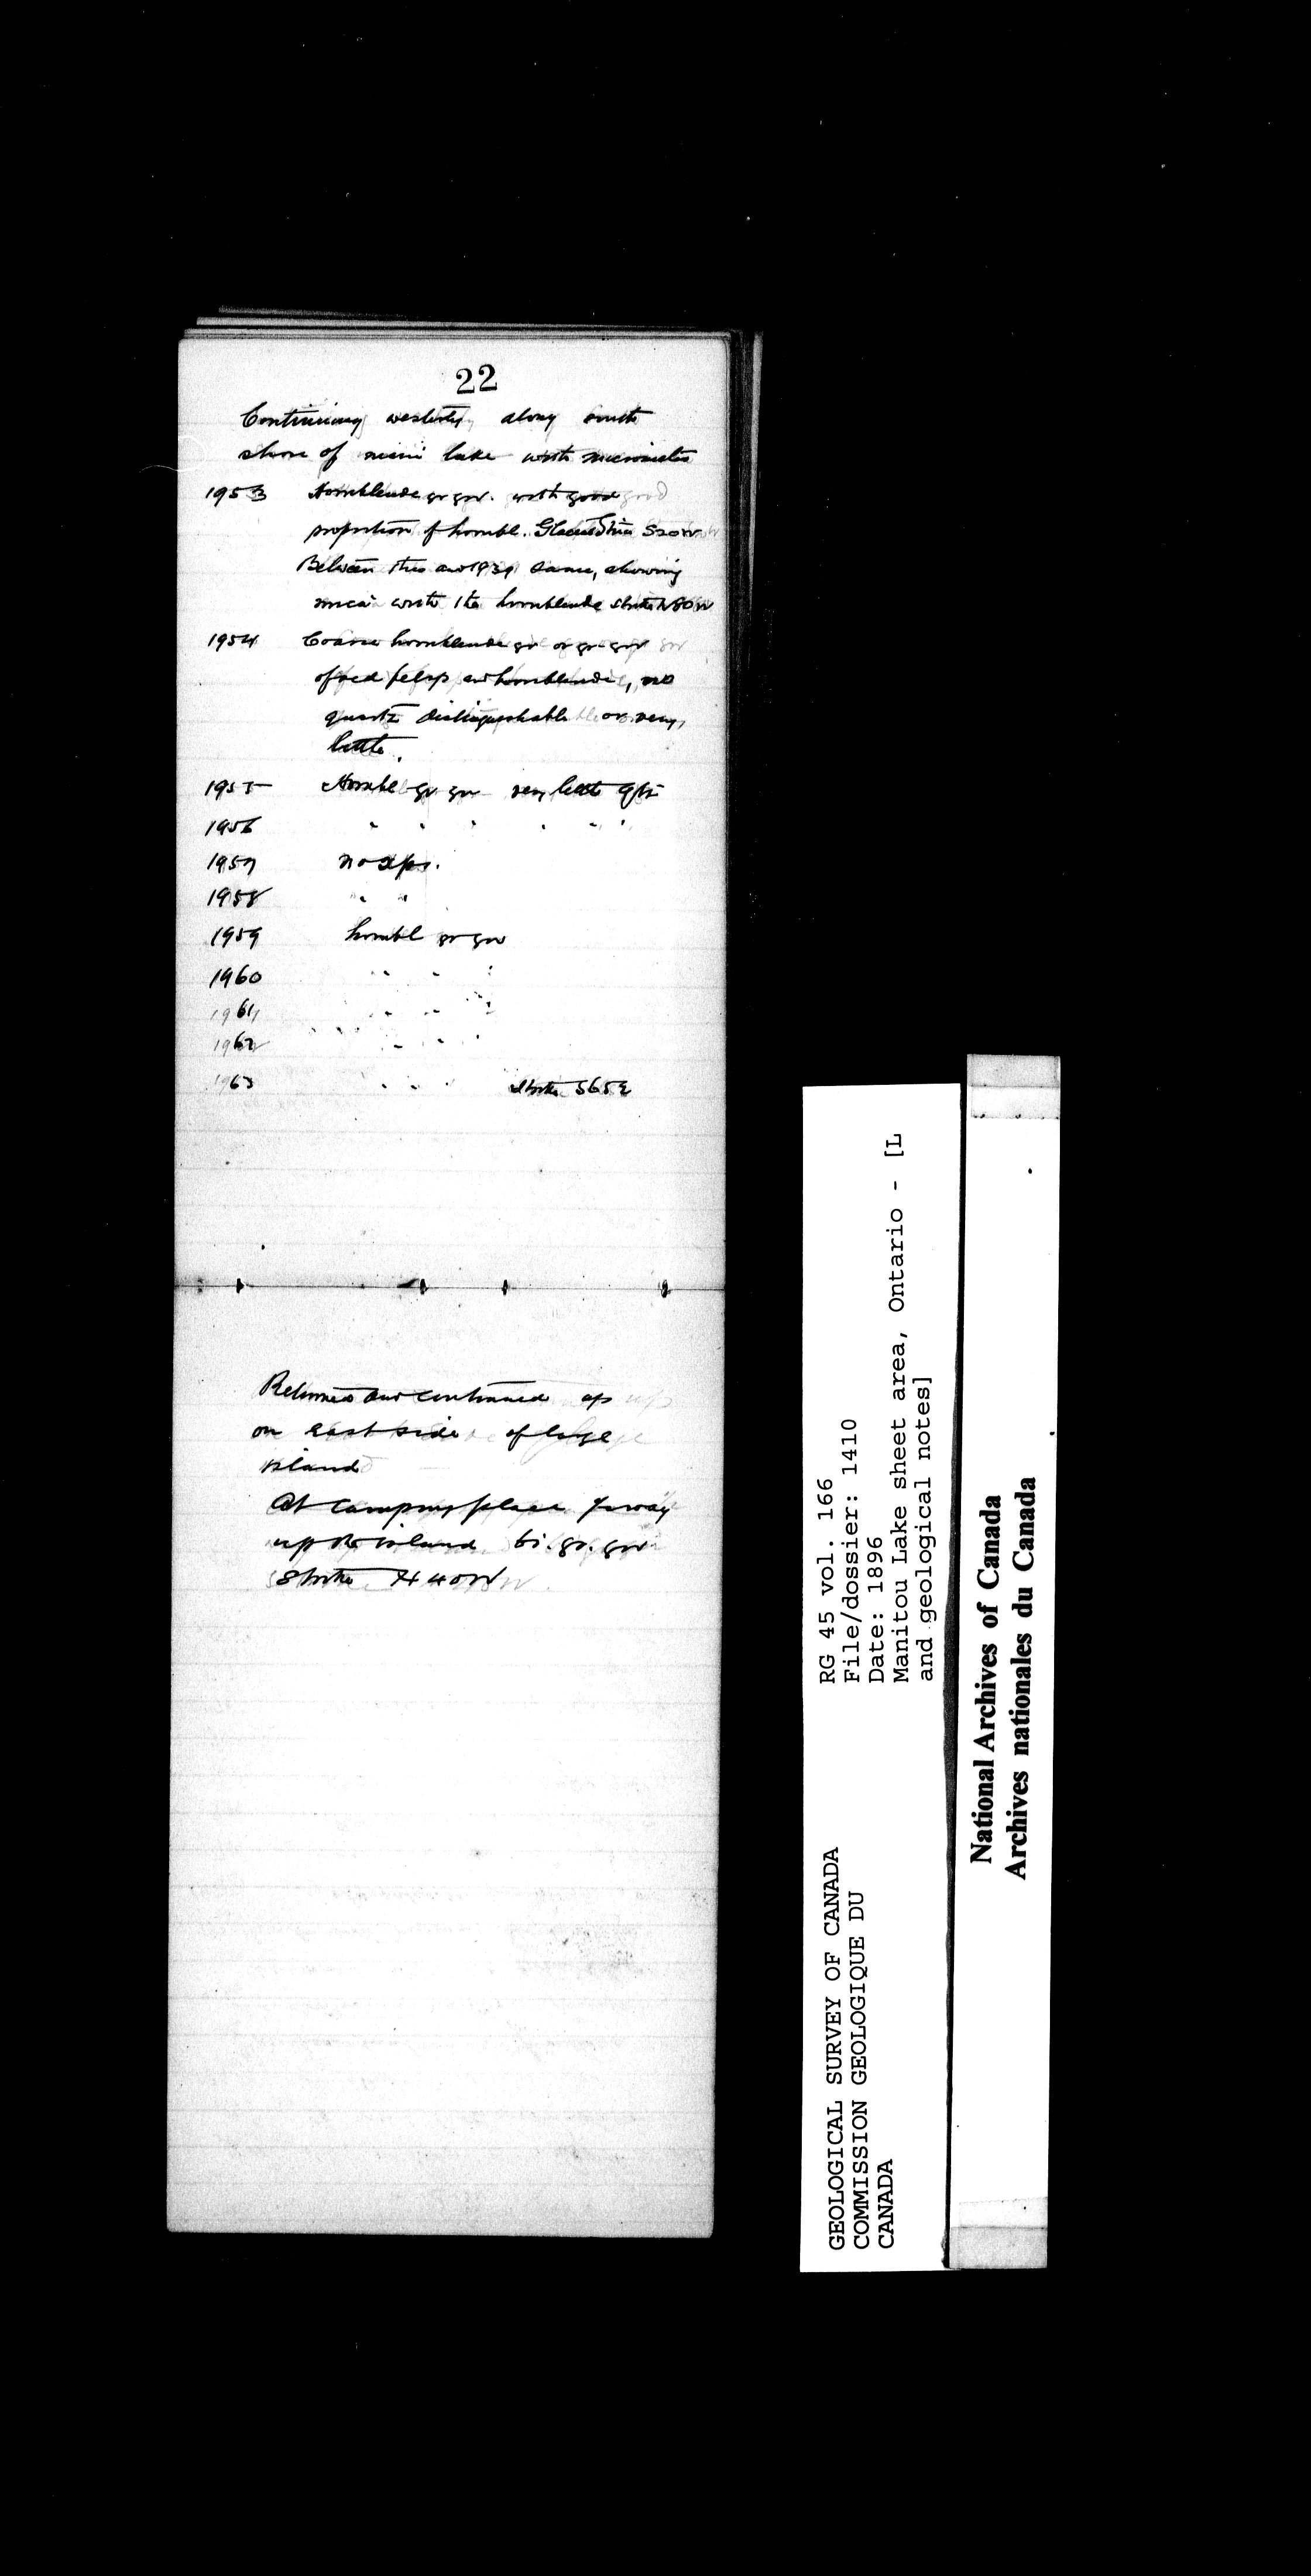 22
Continuing westerly along south
shore of main lake with micrometer
1953 Hornblende gr gn. with good
proportion of hornbl. Glacial Striæ S20W
Between this and 1939 same, showing
mica with the hornblende strike N80W
1954 Coarse hornblende gr or gr gn
of red felsp and hornblende, no
quartz distinguishable or very
little.
1955 Hornbl gr gn very little qtz
1956 " " " " " "
1957 no exps.
1958 " "
1959 hornbl gr gn
1960 " " "
1961 " " "
1962 " " "
1963 " " " Strike S65E
Returned and continued up
on east side of large
island
At camping place
up the island bi. gr. gn
Strike N40W
RG 45 vol. 166
File/dossier: 1410
Date: 1896
Manitou Lake sheet area, Ontario - [L
and geological notes]
GEOLOGICAL SURVEY OF CANADA
COMMISSION GEOLOGIQUE DU
CANADA
National Archives of Canada
Archives nationales du Canada